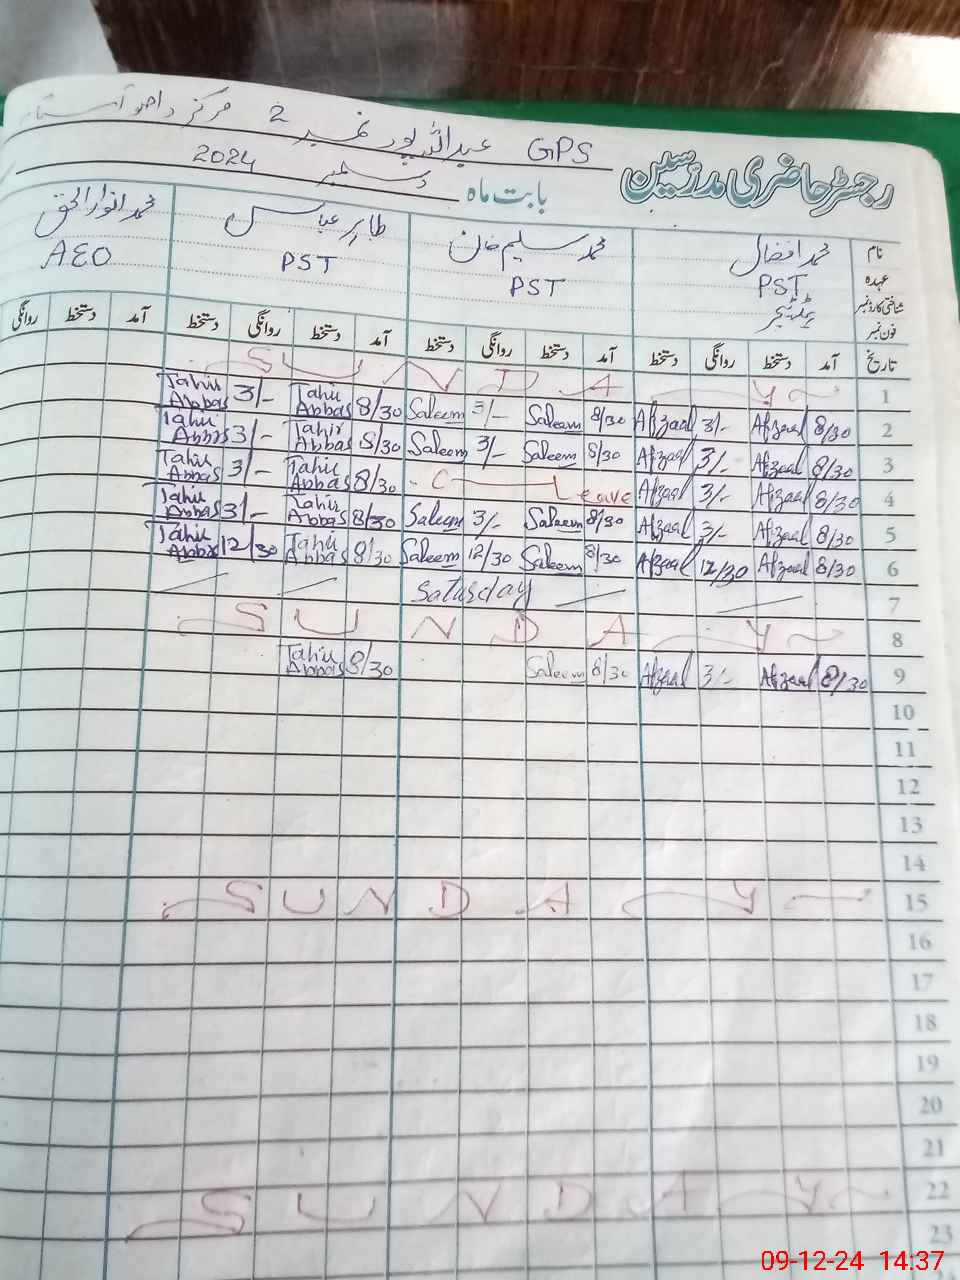 GPS عبداللہ پور نمبر 2 مرکز
رجسٹر حاضری مدرسین
بابت ماہ دسمبر 2024
نام محمد افضال محمد سلیم خان طاہر عباس محمد انوار الحق
عہدہ PST PST PST AEO
شناختی کارڈ نمبر ہیڈ ٹیچر
فون نمبر
تاریخ آمد دستخط روانگی دستخط آمد دستخط روانگی دستخط آمد دستخط روانگی دستخط آمد دستخط روانگی
1 SUNDAY
2 8/30 Afzaal 3/- Afzaal 8/30 Saleem 3/- Saleem 8/30 Tahir Abbas 3/- Tahir Abbas
3 8/30 Afzaal 3/- Afzaal 8/30 Saleem 3/- Saleem 8/30 Tahir Abbas 3/- Tahir Abbas
4 8/30 Afzaal 3/- Afzaal C Leave 8/30 Tahir Abbas 3/- Tahir Abbas
5 8/30 Afzaal 3/- Afzaal 8/30 Saleem 3/- Saleem 8/30 Tahir Abbas 3/- Tahir Abbas
6 8/30 Afzaal 12/30 Afzaal 8/30 Saleem 12/30 Saleem 8/30 Tahir Abbas 12/30 Tahir Abbas
7 Saturday
8 SUNDAY
9 8/30 Afzaal 3/- Afzaal 8/30 Saleem 8/30 Tahir Abbas
10
11
12
13
14
15 SUNDAY
16
17
18
19
20
21
22 SUNDAY
23
09-12-24 14:37